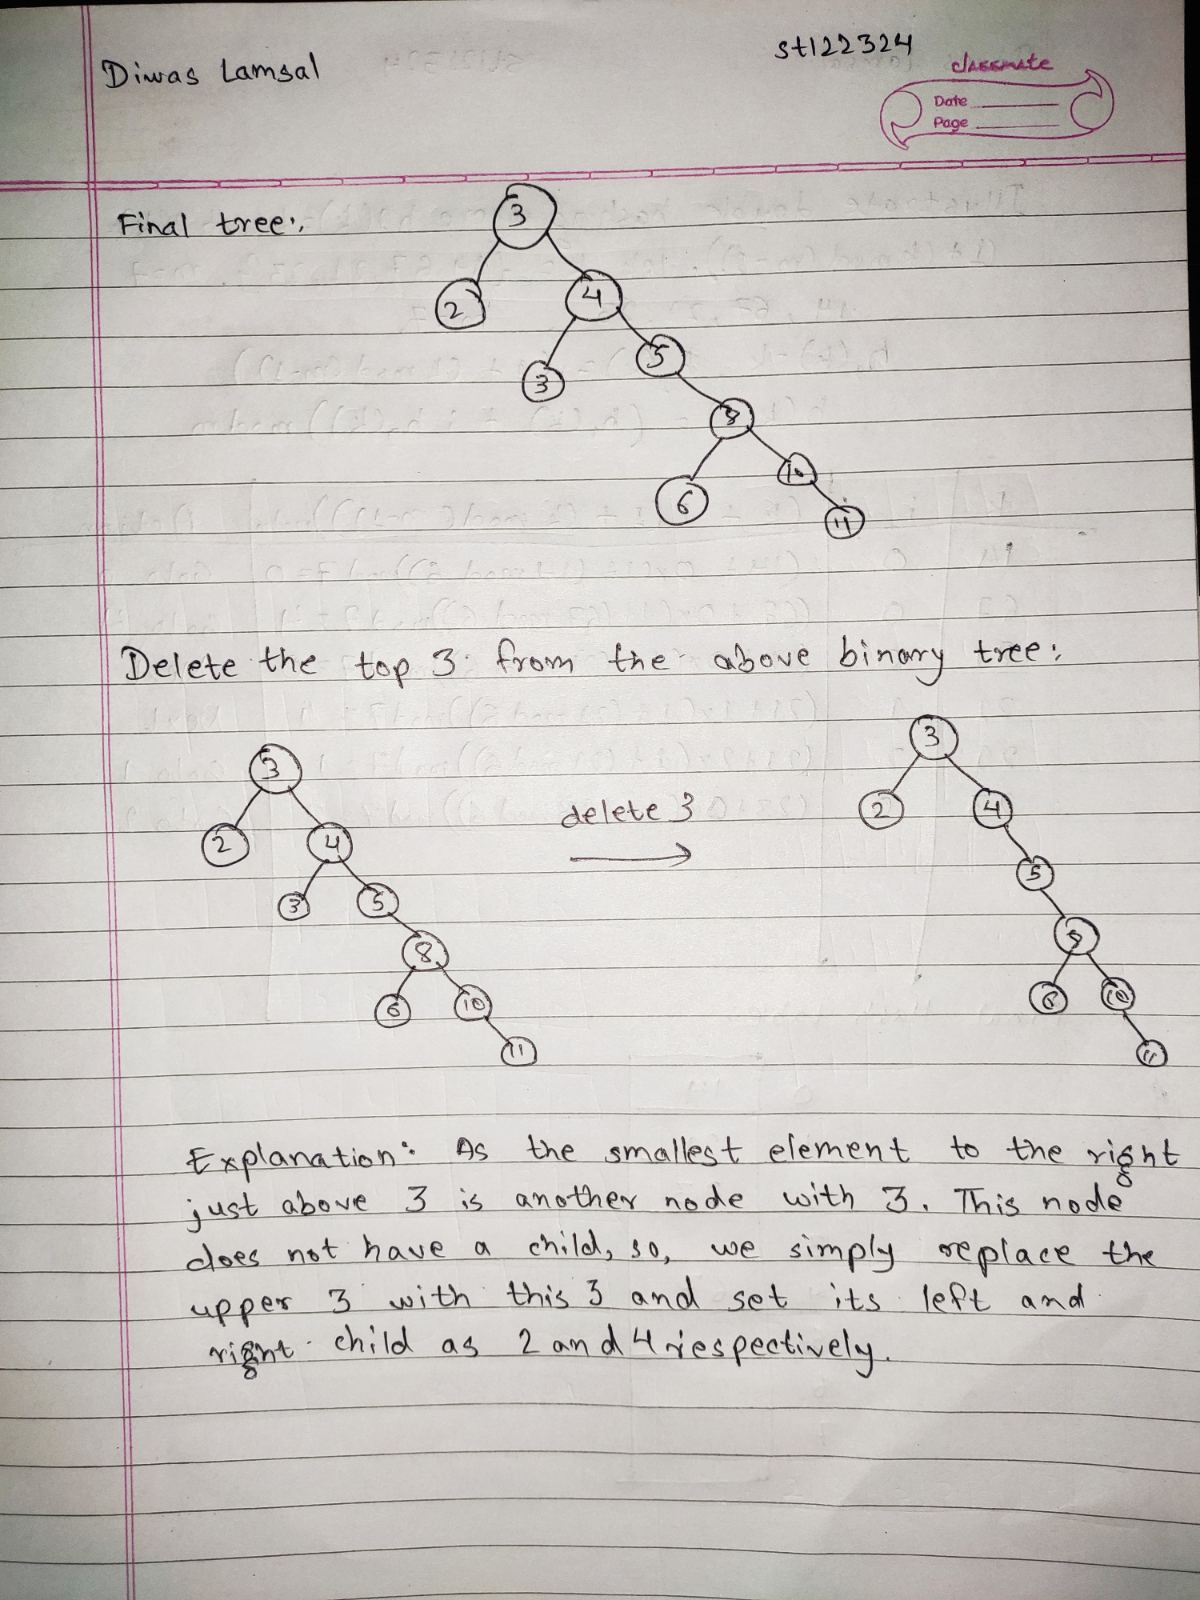 Diwas Lamsal
st122324
classmate
Date
Page
Final tree:
3
2
4
3
5
8
6
10
11
Delete the top 3 from the above binary tree:
3
2
4
3
5
8
6
10
11
delete 3
3
2
4
5
8
6
10
11
Explanation: As the smallest element to the right
just above 3 is another node with 3. This node
does not have a child, so, we simply replace the
upper 3 with this 3 and set its left and
right child as 2 and 4 respectively.